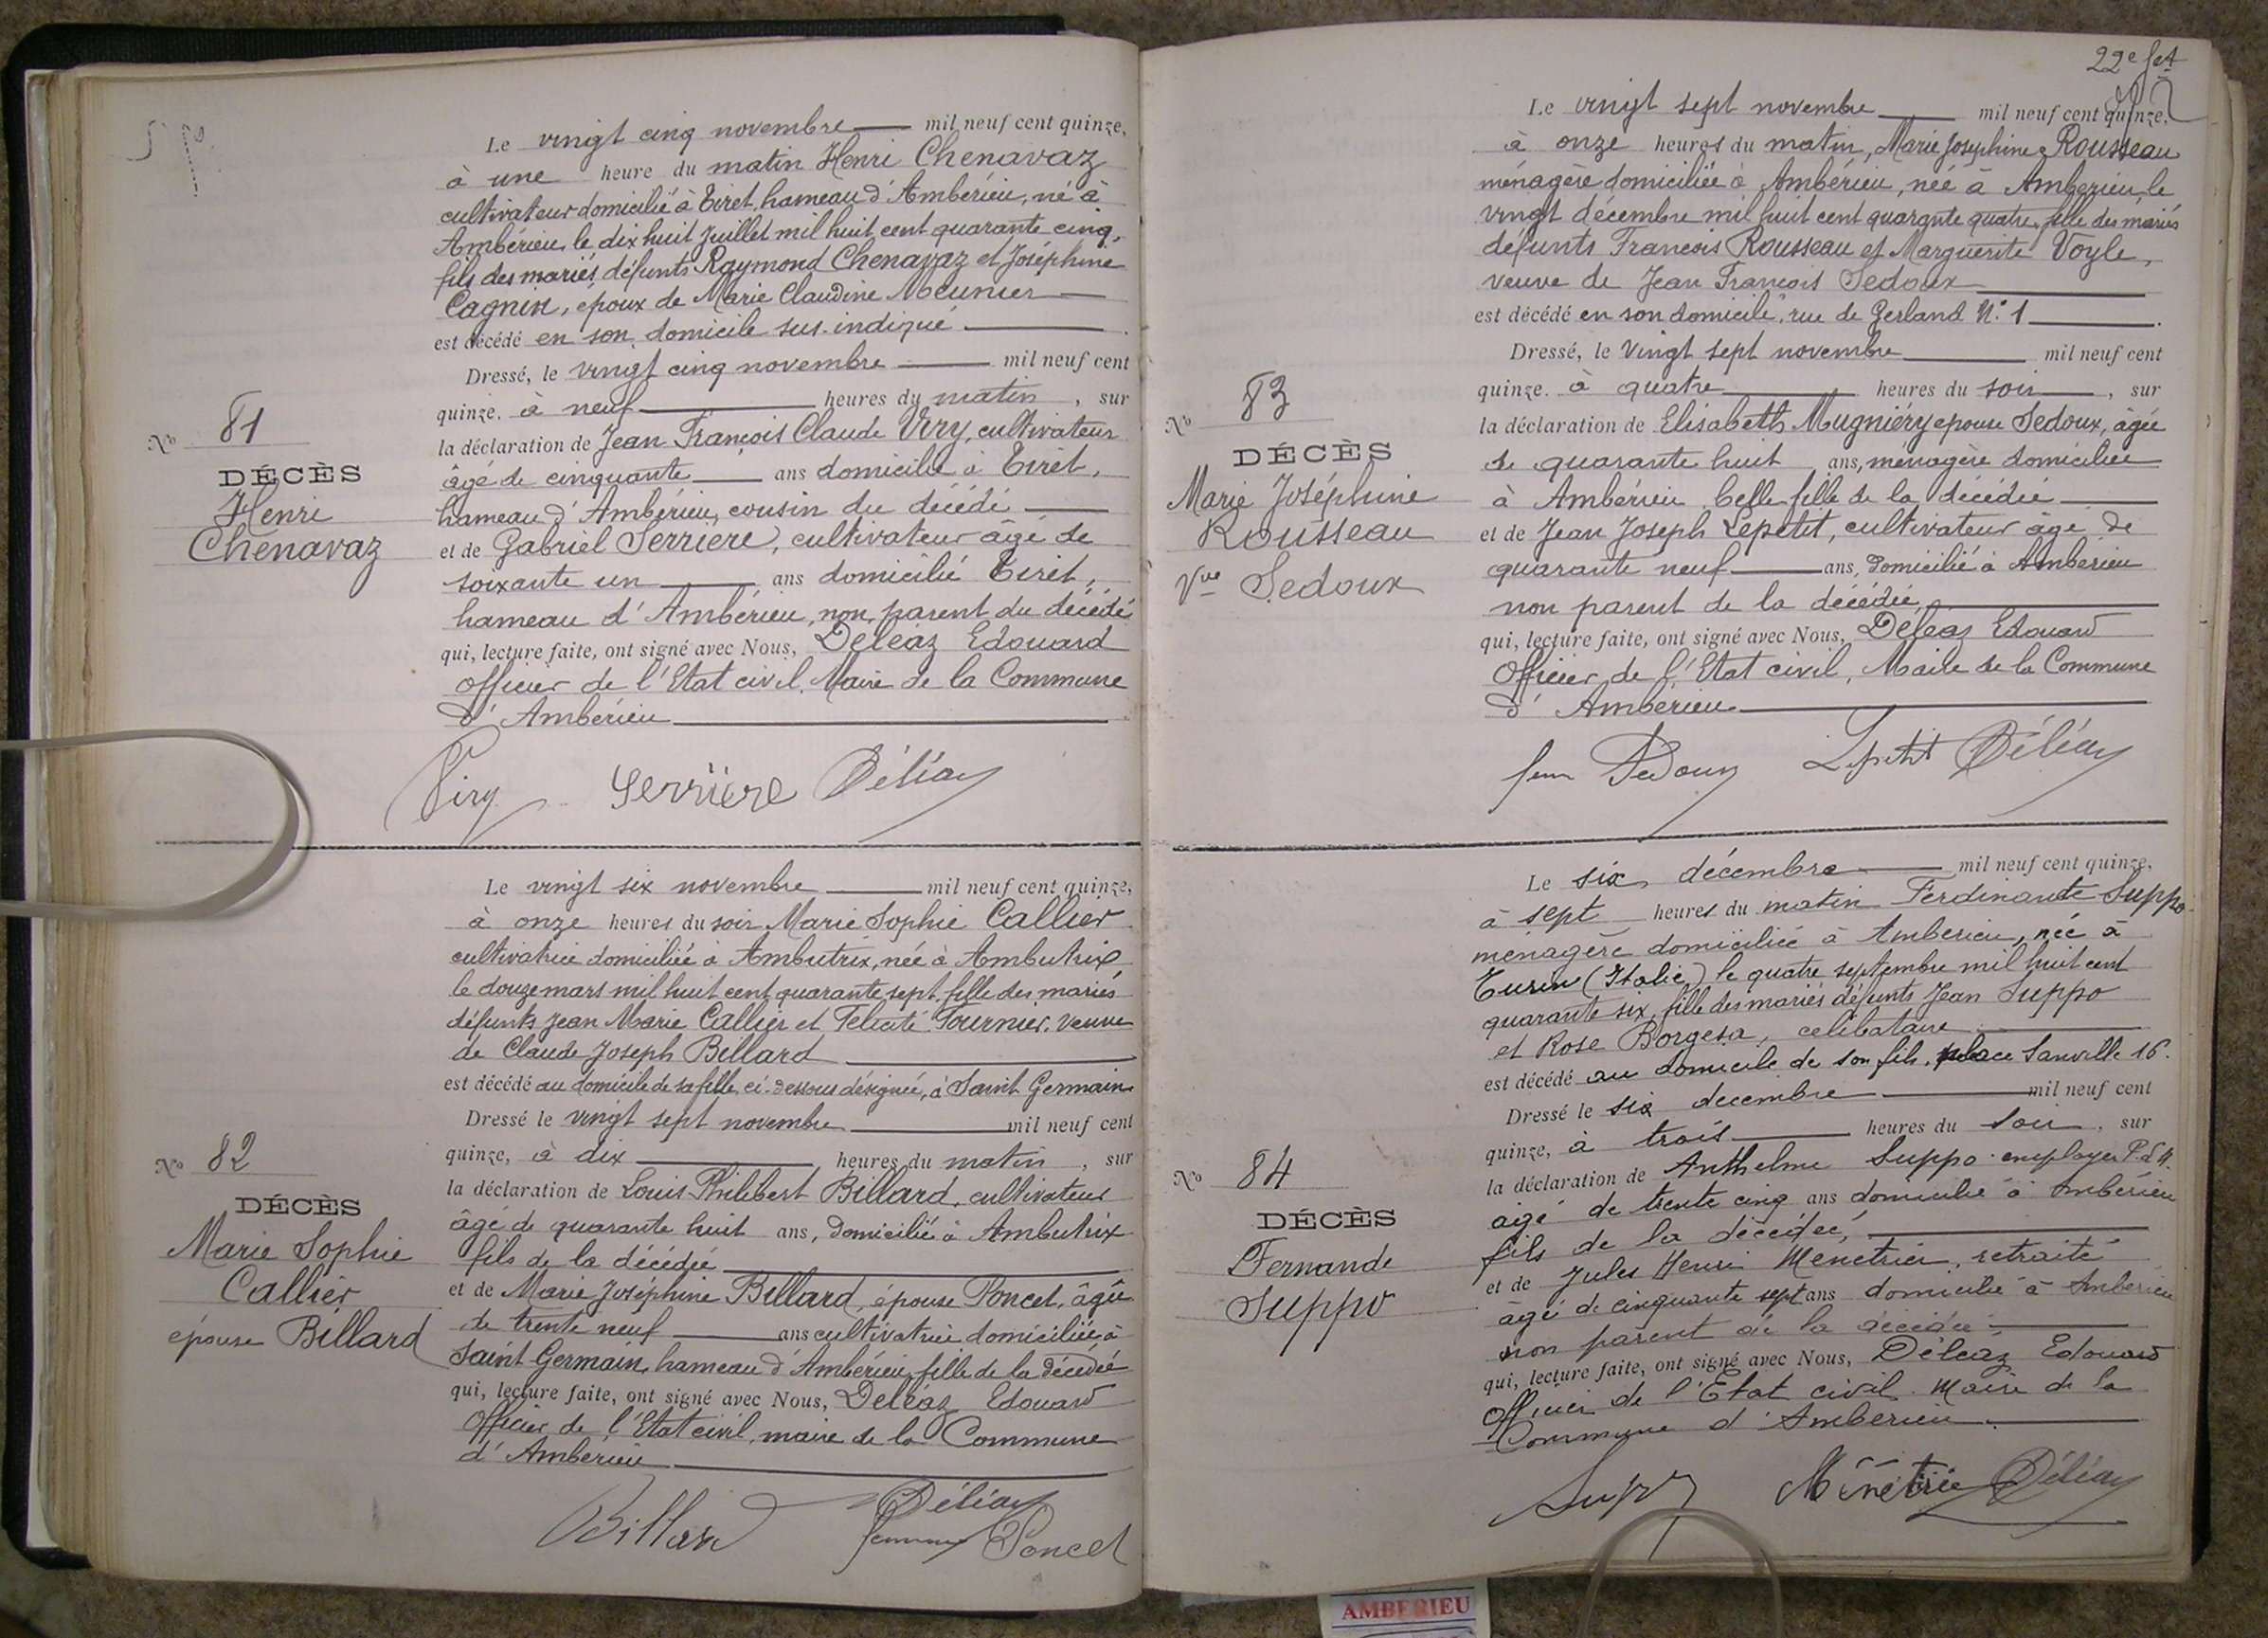 Le vingt cinq novembre mil neuf cent quinze,
à une heure du matin Henri Chenavaz
cultivateur domicilié à Tiret, hameau d'Ambérieu, né à
Ambérieu le dix huit Juillet mil huit cent quarante cinq,
fils des mariés défunts Raymond Chenavaz et Joséphine
Cagnin, époux de Marie Claudine Meunier
est décédé en son domicile sus-indiqué
Dressé, le vingt cinq novembre mil neuf cent
quinze. à neuf heures du matin, sur
la déclaration de Jean François Claude Viry, cultivateur
âgé de cinquante ans domicilié à Tiret,
hameau d'Ambérieu, cousin du décédé
et de Gabriel Serrière, cultivateur âgé de
soixante un ans domicilié Tiret,
hameau d'Ambérieu, non parent du décédé
qui, lecture faite, ont signé avec Nous, Déléaz Edouard
Officier de l'Etat civil, Maire de la Commune
d'Ambérieu
No 81
DÉCÈS
Henri
Chenavaz
Viry Serrière Déléaz
Le vingt six novembre mil neuf cent quinze,
à onze heures du soir Marie Sophie Callier
cultivatrice domiciliée à Ambutrix, née à Ambutrix
le douze mars mil huit cent quarante sept, fille des mariés
défunts Jean Marie Callier et Félicité Fournier, veuve
de Claude Joseph Billard
est décédé au domicile de sa fille, ci-dessous désignée, à Saint Germain
Dressé le vingt sept novembre mil neuf cent
quinze, à dix heures du matin, sur
la déclaration de Louis Philibert Billard, cultivateur
âgé de quarante huit ans, domicilié à Ambutrix
fils de la décédée
et de Marie Joséphine Billard, épouse Poncet, âgée
de trente neuf ans cultivatrice domiciliée à
Saint Germain, hameau d'Ambérieu, fille de la décédée
qui, lecture faite, ont signé avec Nous, Déléaz Edouard
Officier de l'Etat civil, maire de la Commune
d'Ambérieu
No 82
DÉCÈS
Marie Sophie
Callier
épouse Billard
Billard Déléaz
femme Poncet
22e
Le vingt sept novembre mil neuf cent quinze,
à onze heures du matin, Marie Joséphine Rousseau
ménagère domiciliée à Ambérieu, née à Ambérieu, le
vingt décembre mil huit cent quarante quatre, fille des mariés
défunts François Rousseau et Marguerite Voyle,
veuve de Jean François Sedoux
est décédé en son domicile, rue de Gerland N° 1
Dressé, le Vingt sept novembre mil neuf cent
quinze. à quatre heures du soir, sur
la déclaration de Elisabeth Mugniéry épouse Sedoux, âgée
de quarante huit ans, ménagère domiciliée
à Ambérieu, belle-fille de la décédée
et de Jean Joseph Lepetit, cultivateur âgé de
quarante neuf ans, domicilié à Ambérieu
non parent de la décédée
qui, lecture faite, ont signé avec Nous, Déléaz Edouard
Officier de l'Etat civil, Maire de la Commune
d'Ambérieu
No 83
DÉCÈS
Marie Joséphine
Rousseau
Vve Sedoux
fem Sedoux Lepetit Déléaz
Le six décembre mil neuf cent quinze,
à sept heures du matin Ferdinante Suppo
ménagère domiciliée à Ambérieu, née à
Turin (Italie) le quatre septembre mil huit cent
quarante six, fille des mariés défunts Jean Suppo
et Rose Borgesa, célibataire
est décédé au domicile de son fils, place Sanville 16.
Dressé le six décembre mil neuf cent
quinze, à trois heures du soir, sur
la déclaration de Anthelme Suppo employé P.L.M.
âgé de trente cinq ans domicilié à Ambérieu
fils de la décédée,
et de Jules Henri Menetrier, retraité
âgé de cinquante sept ans domicilié à Ambérieu
non parent de la décédée
qui, lecture faite, ont signé avec Nous, Déléaz Edouard
Officier de l'Etat civil. Maire de la
Commune d'Ambérieu
No 84
DÉCÈS
Fernande
Suppo
Suppo Ménétrie Déléaz
AMBERIEU